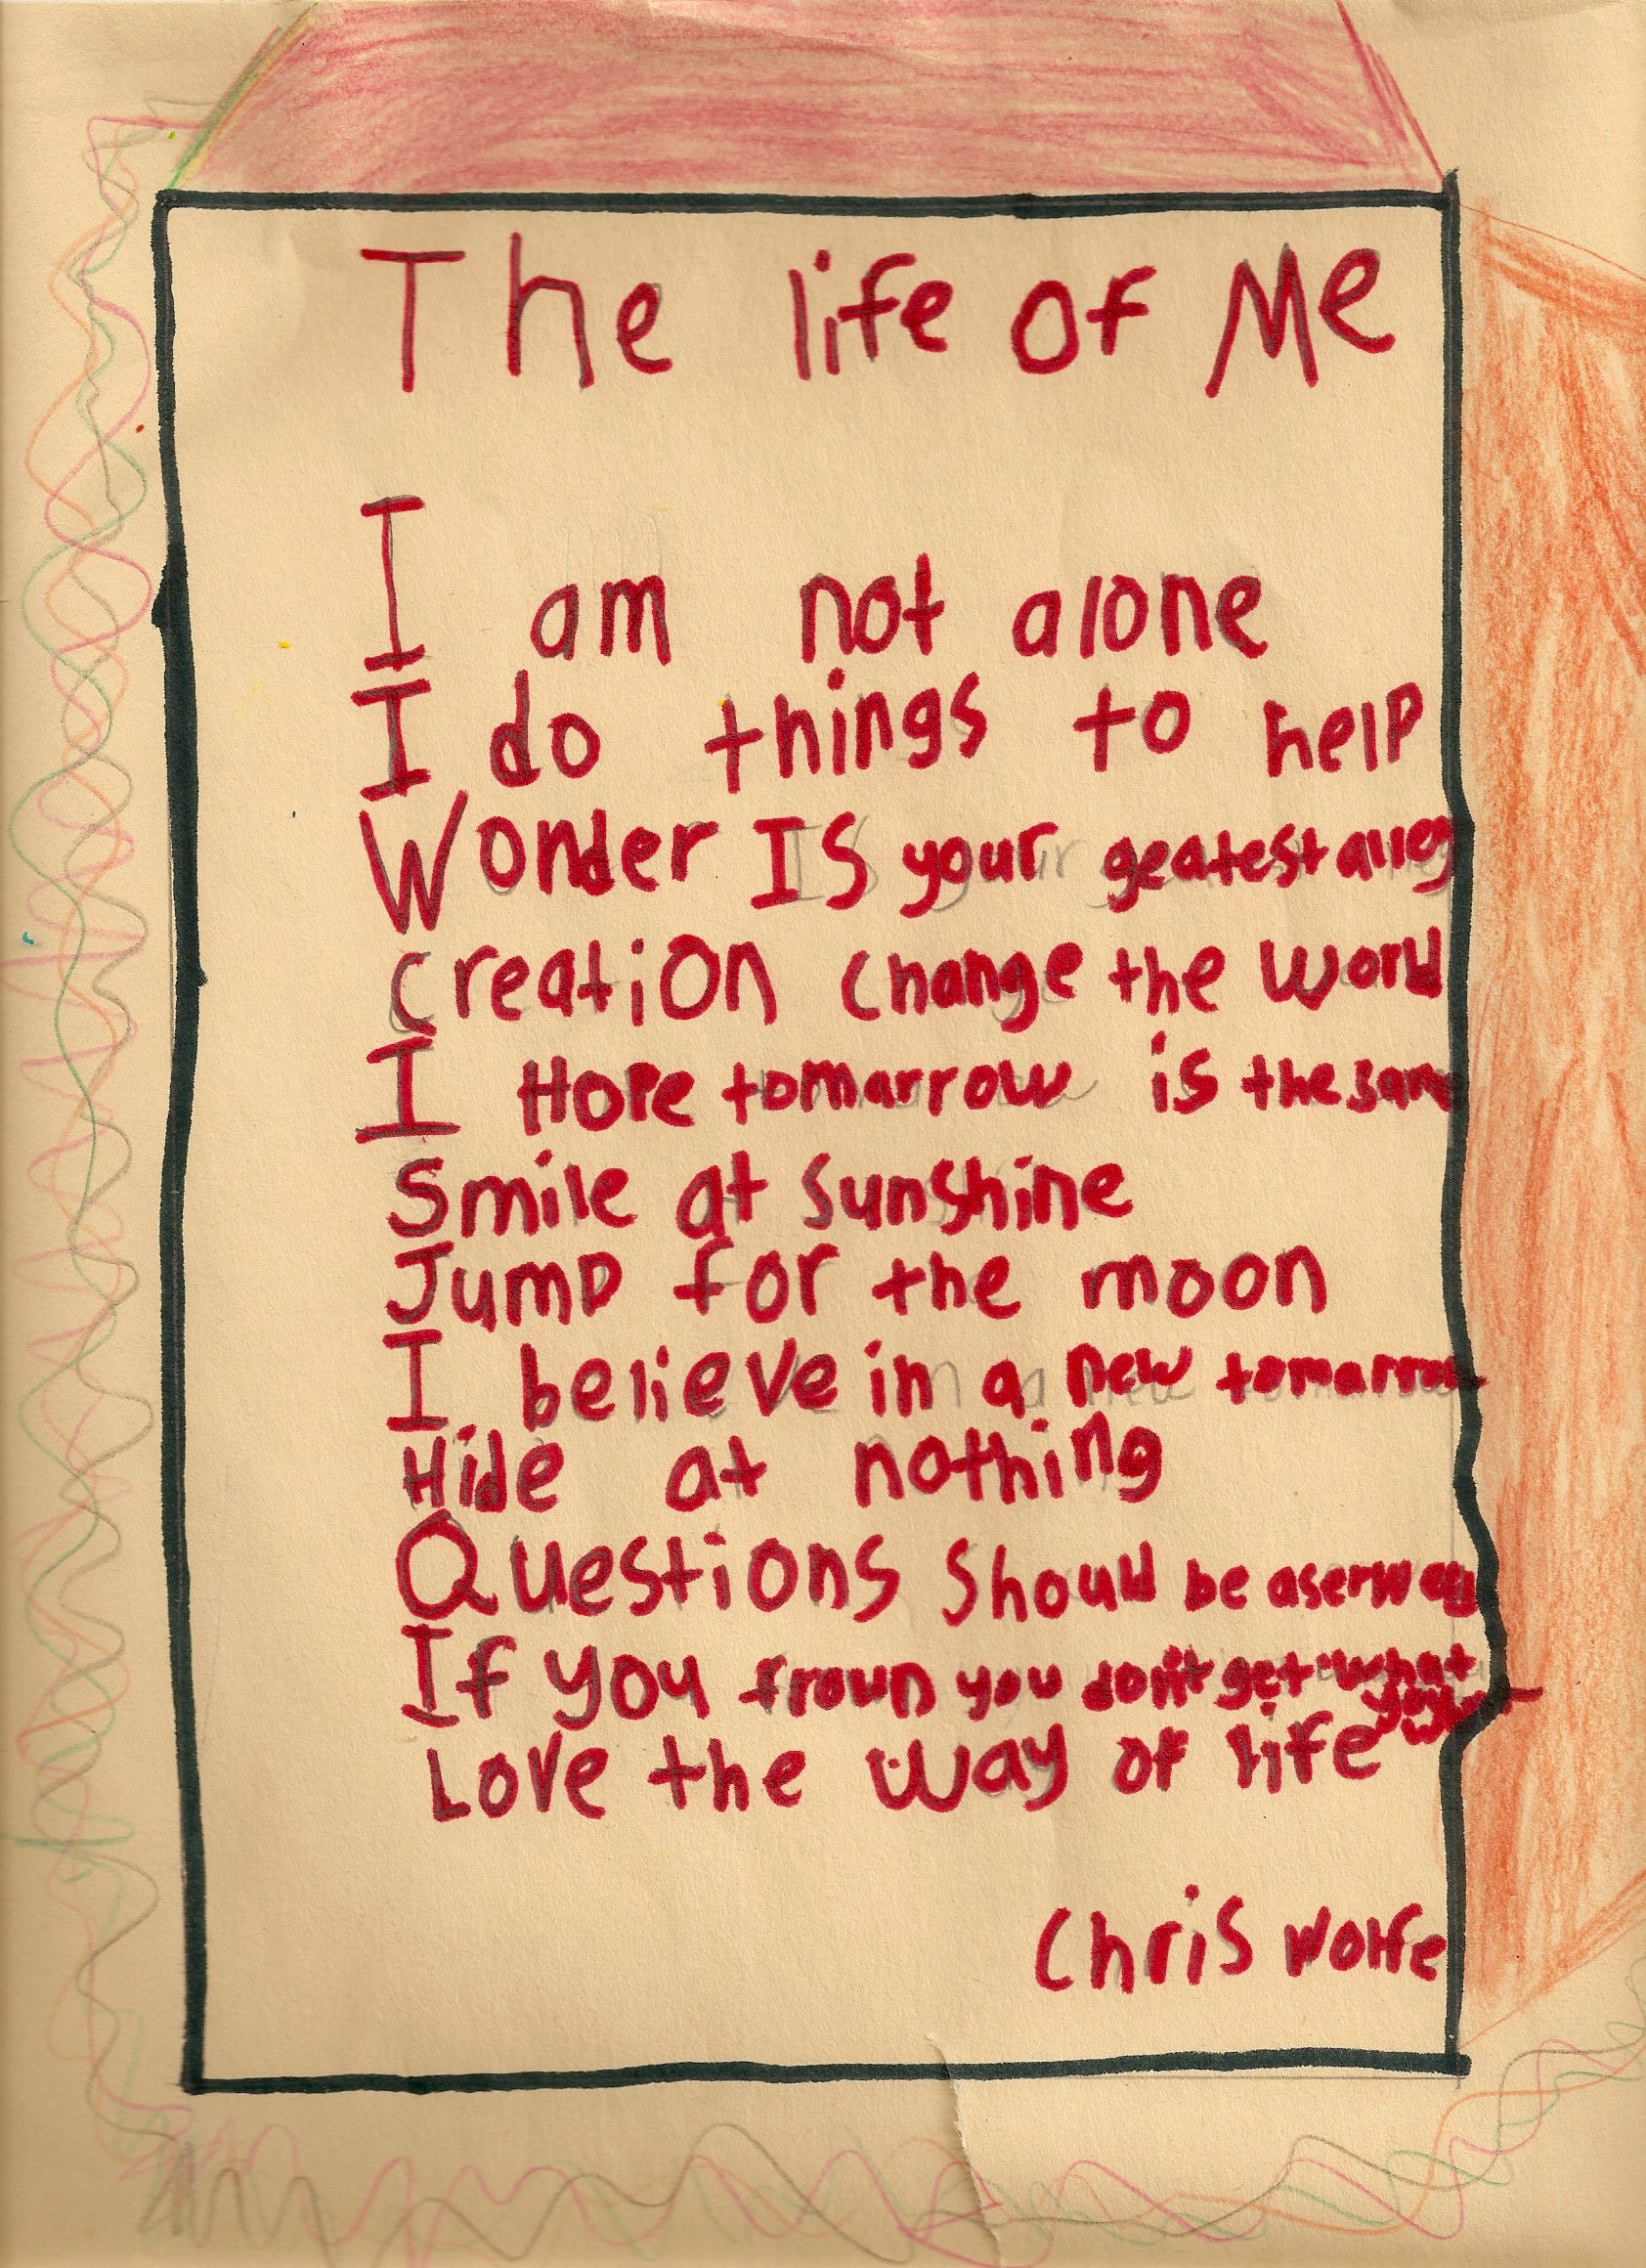 The life of Me
I am not alone
I do things to help
Wonder IS your geatest alley
Creation change the world
I Hope tomarrow is the same
Smile at sunshine
Jump for the moon
I believe in a new tomarrow
Hide at nothing
Questions should be
If you frown you don't get what you
Love the way of life
Chris Wolfe